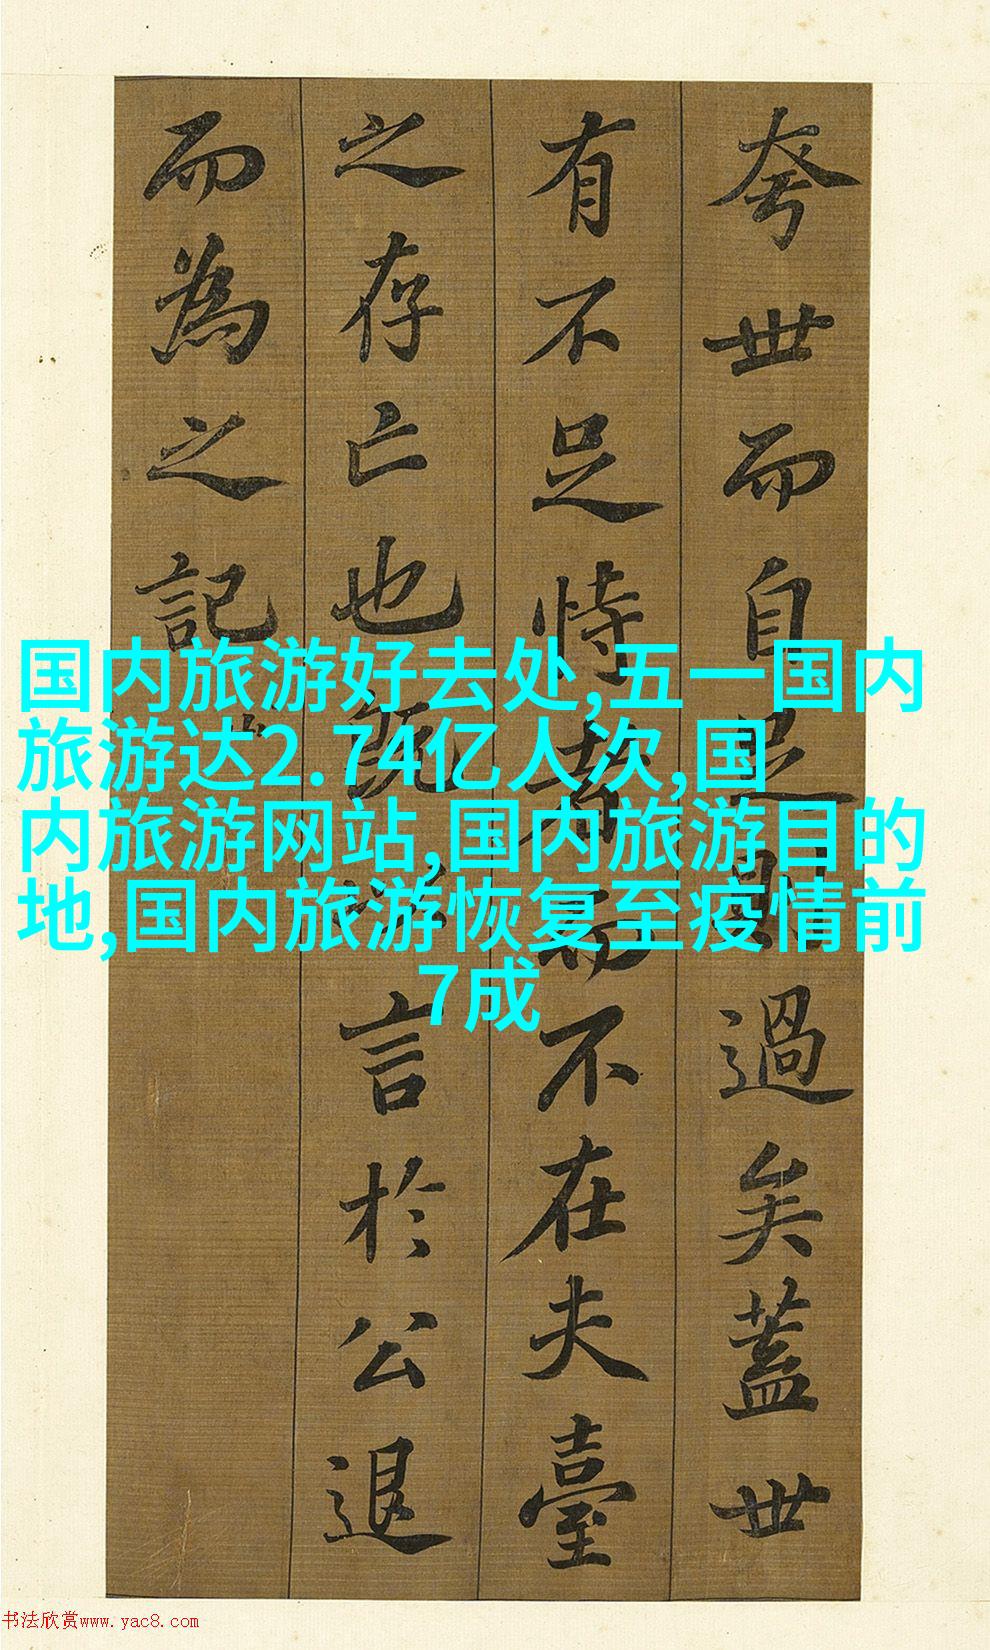 夸世而自足則過矣蓋世
有不足恃者而不在夫臺
之存亡也既以言於公退
而為之記
国内旅游好去处,五一国内
旅游达2.74亿人次,国
内旅游网站,国内旅游目的
地,国内旅游恢复至疫情前
7成
书法欣赏www.yac8.com